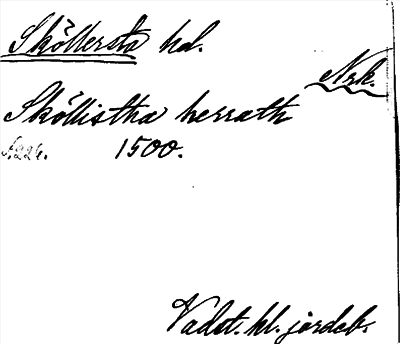 Sköllersta hd.
Nrk.
Sköllistha herrath
s. 224. 1500.
Vadst. kl. jordeb.